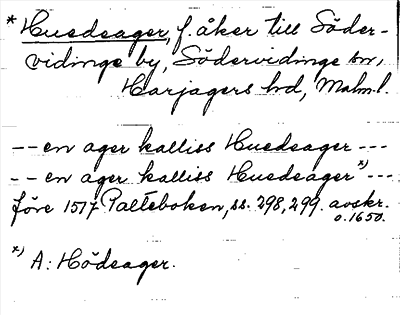 * Huedeager, f. åker till Söder-
vidinge by, Södervidinge sn,
Harjagers hd, Malm.l.
-- en ager kalliss Huedeager ---
-- en ager kalliss Huedeager x) ---
före 1517 Palteboken, ss. 298, 299. avskr.
o. 1650.
x) A: Hödeager.